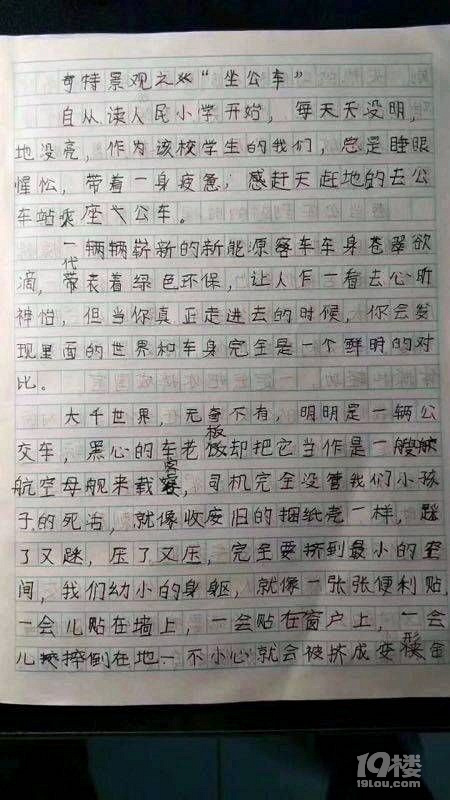 奇特景观之"坐公车"
自从读人民小学开始，每天天没明，
地没亮，作为该校学生的我们，总是睡眼
惺忪，带着一身疲惫；感赶天赶地的去公
车站乘座公车。
一辆辆崭新的新能源客车车身苍翠欲
滴，代表着绿色环保，让人乍一看去心旷
神怡，但当你真正走进去的时候，你会发
现里面的世界和车身完全是一个鲜明的对
比。
大千世界，无奇不有，明明是一辆公
交车，黑心的车老板却把它当作是一艘
航空母舰来载客，司机完全没管我们小孩
子的死活，就像收废旧的捆纸壳一样，踩
了又踩，压了又压，完全要挤到最小的空
间，我们幼小的身躯，就像一张张便利贴，
一会儿贴在墙上，一会贴在窗户上，一会
儿摔倒在地一不小心就会被挤成变形金
19楼
19lou.com